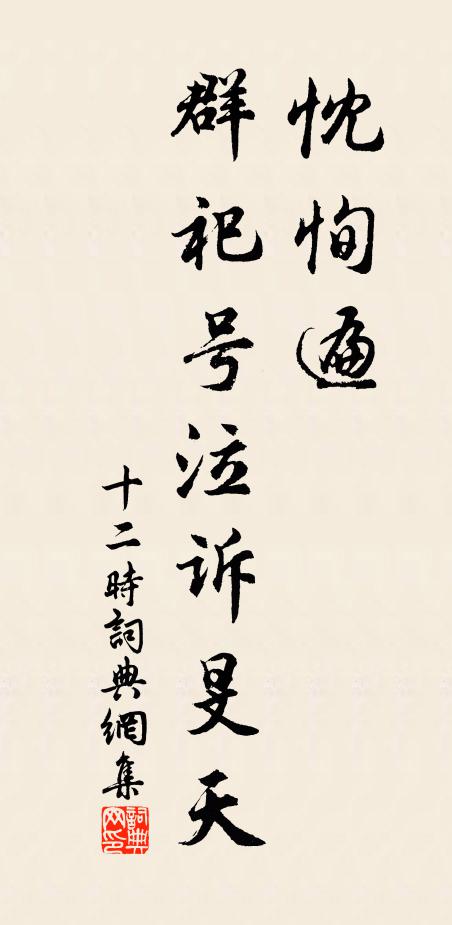 忱恂遍
群祀号泣诉旻天
十二時詞典網集
詞典网印